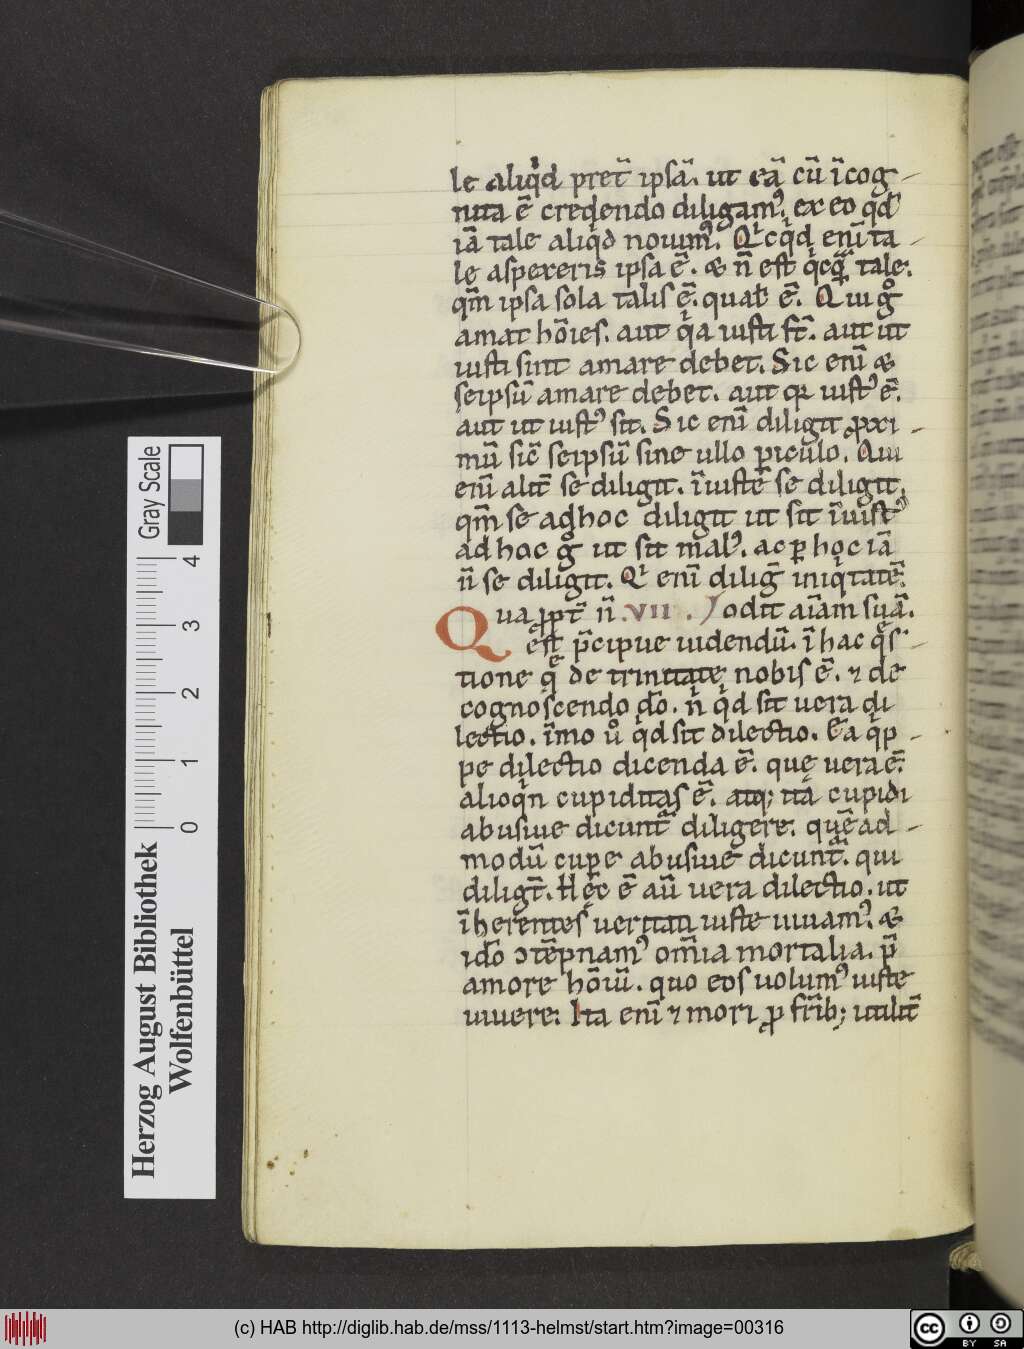 le aliq̇d pret̄ ipsā. ut eā cū īcog-
nita ē credendo diligam᷒, ex eo qđ
iā tale aliq̇d nouim᷒. Q̇cq̇d enī ta-
le aspexeris ipsa ē. & n̄ est q̇cq̄ tale.
qm̄ ipsa sola talis ē. qual̄ ē. Qui g̊
amat hōies. aut q̇a iusti st̄. aut ut
iusti sint amare debet. Sic enī &
seipsū amare debet. aut qꝛ iust᷒ ē.
aut ut iust᷒ sit. Sic enī diligit ꝓxi-
mū sic̄ seipsū sine ullo ꝑiculo. Qui
enī alit̄ se diligit. īiuste se diligit,
qm̄ se adhoc diligit ut sit īiust᷒
ad hoc g̊ ut sit mal᷒. ac ꝑ hoc iā
n̄ se diligit. Q̇ enī diligt̄ iniq̇tatē.
Qua ꝓpt̄ n̄ .VII. odit aīam suā.
est p̄cipue uidendū. ī hac q̄s-
tione q̄ de trinitate nobis ē. ⁊ de
cognoscendo do. n̄ q̇d sit uera di
lectio. īmo ů q̇d sit dilectio. Ea q̇p-
pe dilectio dicenda ē. quę uera ē.
alioq̇n cupiditas ē. atq; ita cupidi
abusiue dicunt̄ diligere. quēad-
modū cuꝑe abusiue dicunt̄. qui
diligt̄. Hęc ē aū uera dilectio. ut
īherentes ueritati iuste uiuam᷒. &
ido ↄtēpnam᷒ om̄ia mortalia. p̄
amore hōiū. quo eos uolum᷒ iuste
uiuere. Ita enī ⁊ mori ꝓ fr̄ib; utilit̄
Gray Scale
4
3
2
1
0
Herzog August Bibliothek
Wolfenbüttel
(c) HAB http://diglib.hab.de/mss/1113-helmst/start.htm?image=00316
cc BY SA